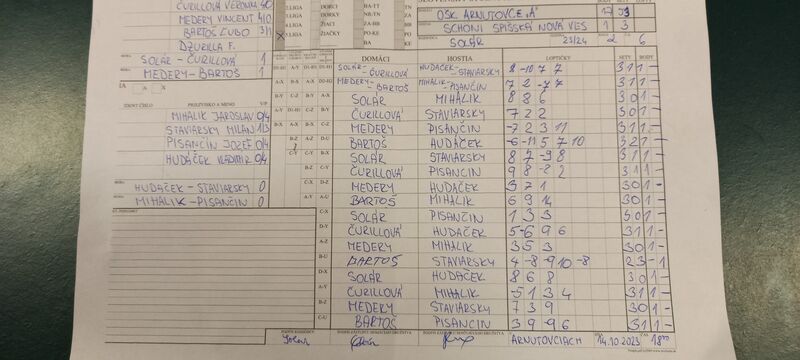 ČURILLOVÁ VERONIKA 4/0
MEDERY VINCENT 4/0
BARTOŠ ĽUBO 3/1
DZURILLA F.
SOLÁR - ČURILLOVÁ 1
MEDERY - BARTOŠ 1
PRIEZVISKO A MENO V/P
MIHALIK JAROSLAV 0/4
STAVIARSKY MILAN 1/3
PISANČIN JOZEF 0/4
HUDÁČEK VLADIMIR 0/4
HUDAČEK - STAVIARSKY 0
MIHALIK - PISANČIN 0
LIGA DORCI BA-TT
LIGA DORKY NR/TN ZA
LIGA ŽIACI BB
LIGA ŽIAČKY PO-KE
OŠK ARNUTOVCE „A"
SCHONI SPIŠSKÁ NOVÁ VES 1 3
SOLÁR 23/24 2 6
DOMÁCI HOSTIA LOPTIČKY SETY BODY
SOLÁR - ČURILLOVÁ HUDAČEK - STAVIARSKY 8 -10 7 7 3 1 1 -
MEDERY - BARTOŠ MIHALIK - PISANČIN 7 2 -7 7 3 1 1 -
SOLÁR MIHÁLIK 8 8 6 3 0 1 -
ČURILLOVÁ STAVIARSKY 7 2 2 3 0 1 -
MEDERY PISANČIN -7 2 3 11 3 1 1 -
BARTOŠ HUDAČEK -6 -11 5 7 10 3 2 1 -
SOLÁR STAVIARSKY 8 7 -9 8 3 1 1 -
ČURILLOVÁ PISANČIN 9 8 -8 2 3 1 1 -
MEDERY HUDAČEK 3 7 1 3 0 1 -
BARTOŠ MIHALIK 6 9 14 3 0 1 -
SOLÁR PISANČIN 1 3 3 3 0 1 -
ČURILLOVÁ HUDAČEK 5 -6 9 6 3 1 1 -
MEDERY MIHALIK 3 5 3 3 0 1 -
BARTOŠ STAVIARSKY 4 -8 -9 10 -8 2 3 - 1
SOLÁR HUDAČEK 8 6 8 3 0 1 -
ČURILLOVÁ MIHALIK -5 1 3 4 3 1 1 -
MEDERY STAVIARSKY 7 3 9 3 0 1 -
BARTOŠ PISANČIN 3 9 -9 6 3 1 1 -
ARNUTOVCIACH 14.10.2023 18⁰⁰